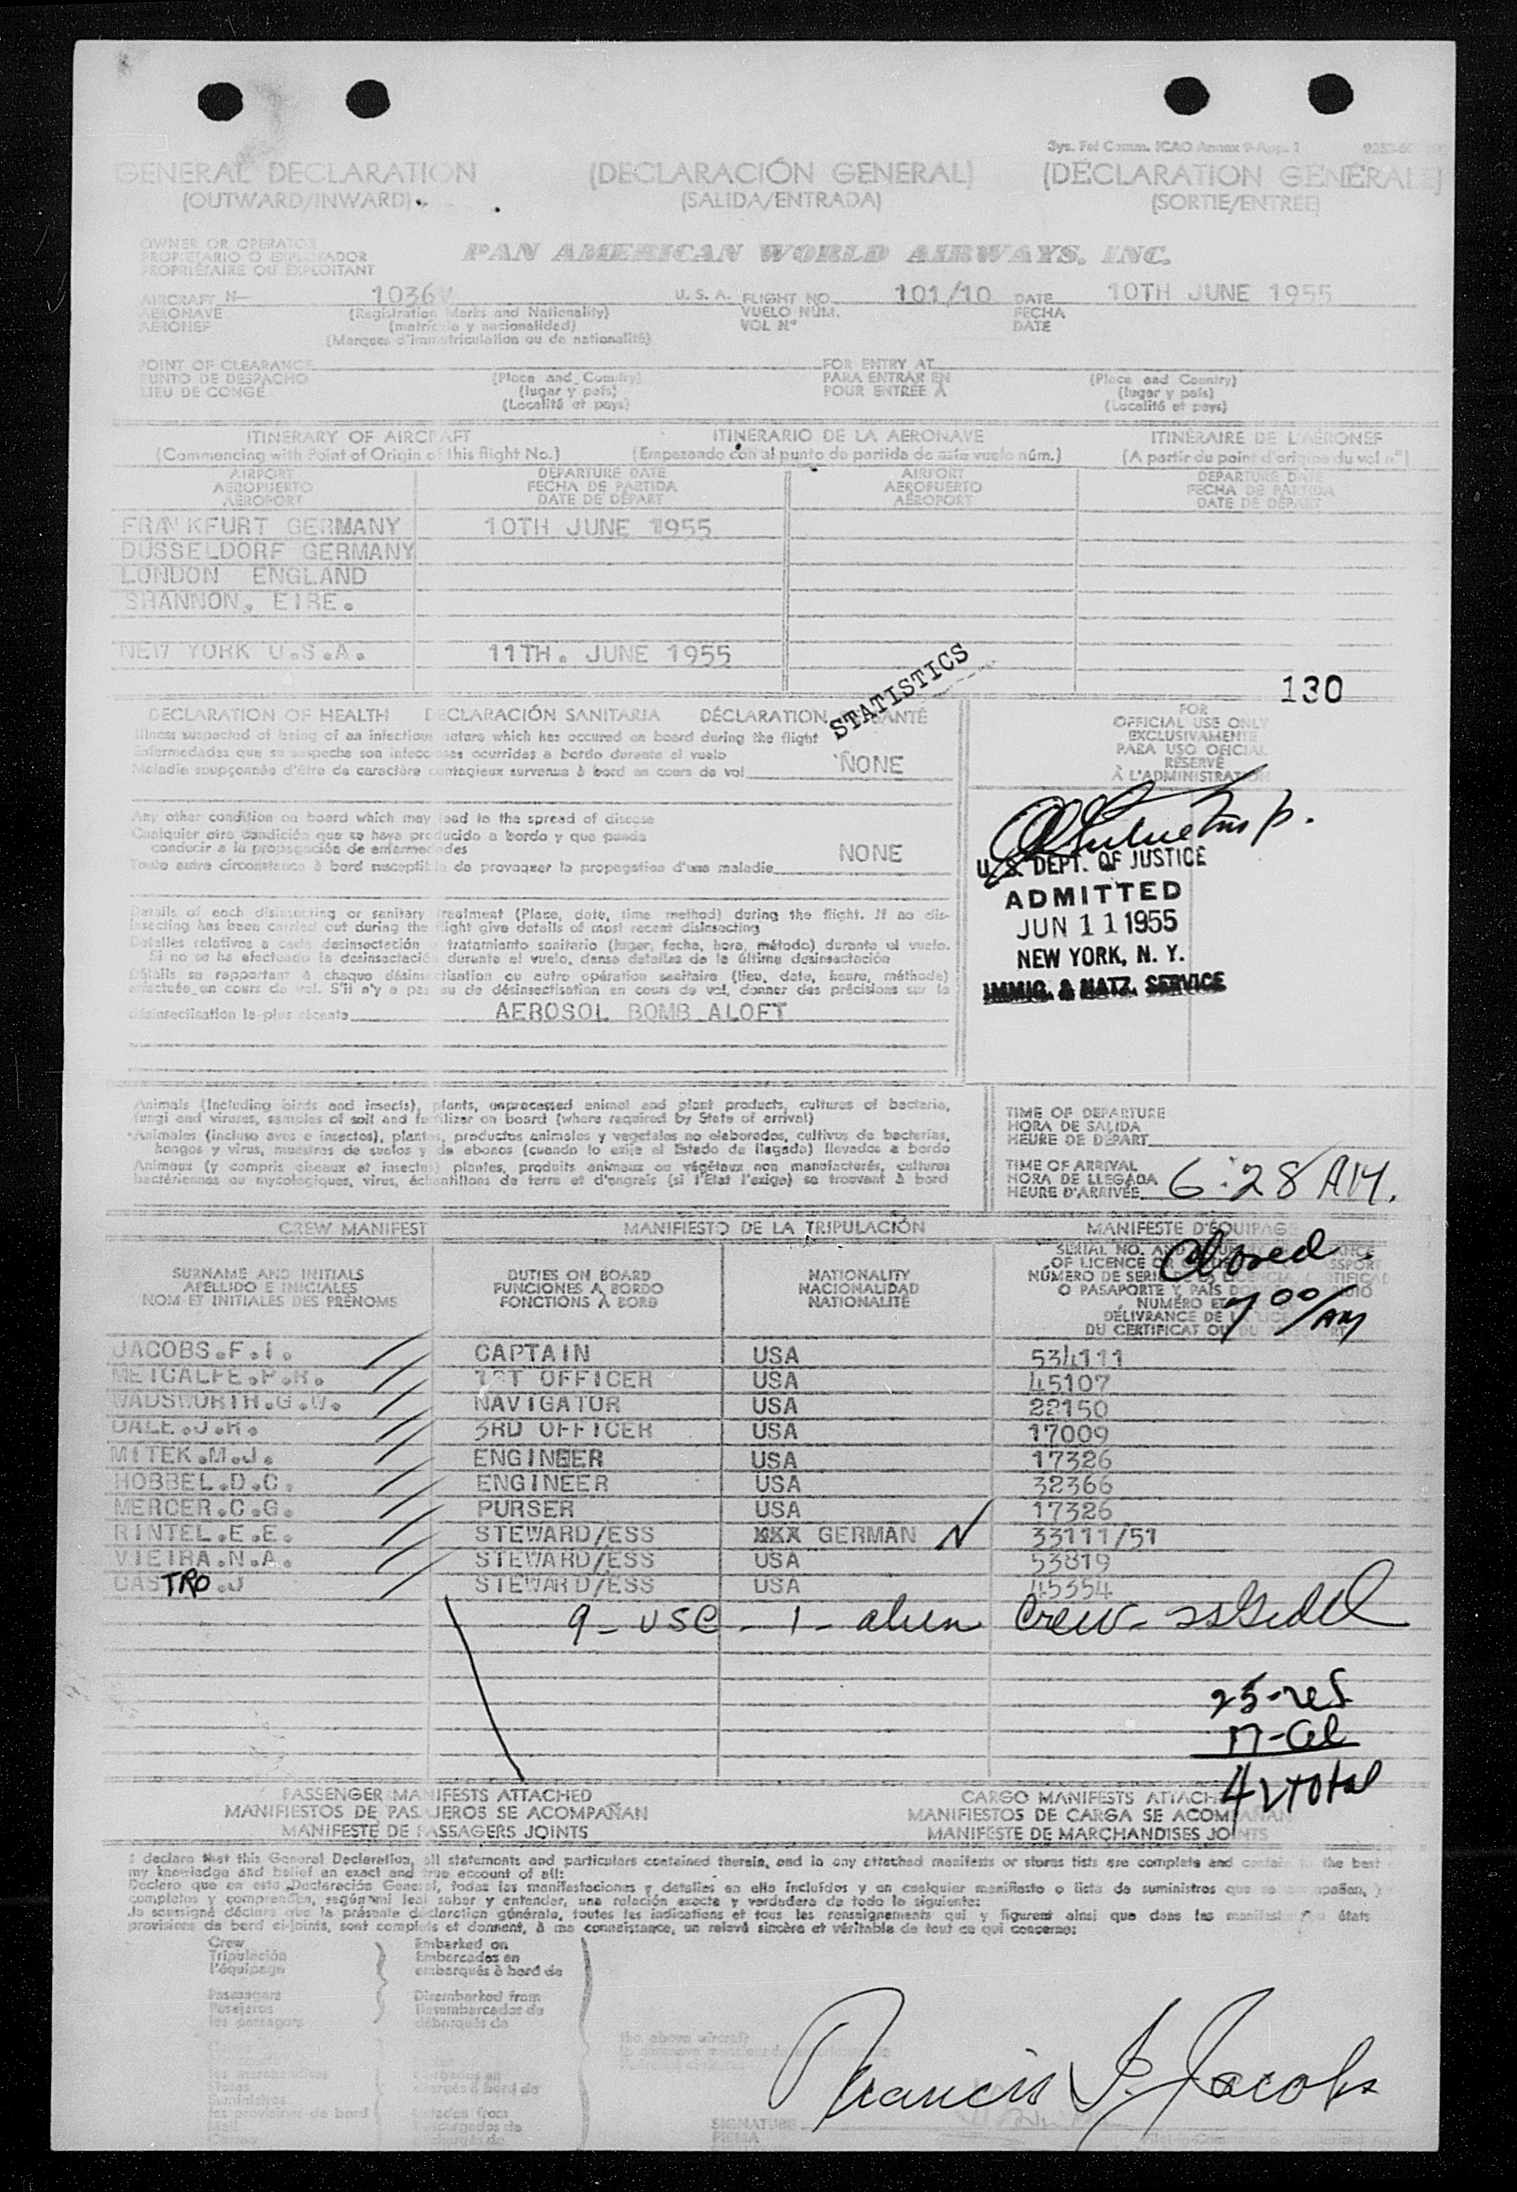 Sys. Fel Comm. ICAO Annex 9-App. 1
GENERAL DECLARATION (DECLARACIÓN GENERAL) (DÉCLARATION GÉNÉRALE)
(OUTWARD/INWARD) (SALIDA/ENTRADA) (SORTIE/ENTRÉE)
OWNER OR OPERATOR
PROPIETARIO O EXPLOTADOR
PROPRIÉTAIRE OU EXPLOITANT
PAN AMERICAN WORLD AIRWAYS, INC.
AIRCRAFT N— 1036V U. S. A. FLIGHT NO. 101/10 DATE 10TH JUNE 1955
AERONAVE (Registration Marks and Nationality) VUELO NÚM. FECHA
AÉRONEF (matrícula y nacionalidad) VOL Nº DATE
(Marques d'immatriculation ou de nationalité)
POINT OF CLEARANCE FOR ENTRY AT
PUNTO DE DESPACHO (Place and Country) PARA ENTRAR EN (Place and Country)
LIEU DE CONGÉ (lugar y país) POUR ENTRÉE À (lugar y país)
(Localité et pays) (Localité et pays)
ITINERARY OF AIRCRAFT ITINERARIO DE LA AERONAVE ITINÉRAIRE DE L'AÉRONEF
(Commencing with Point of Origin of this flight No.) (Empezando con al punto de partida de este vuelo núm.) (A partir du point d'origine du vol nº)
AIRPORT DEPARTURE DATE AIRPORT DEPARTURE DATE
AEROPUERTO FECHA DE PARTIDA AEROPUERTO FECHA DE PARTIDA
AÉROPORT DATE DE DÉPART AÉROPORT DATE DE DÉPART
FRANKFURT GERMANY 10TH JUNE 1955
DUSSELDORF GERMANY
LONDON ENGLAND
SHANNON, EIRE.
NEW YORK U.S.A. 11TH. JUNE 1955
STATISTICS
130
DECLARATION OF HEALTH DECLARACIÓN SANITARIA DÉCLARATION DE SANTÉ
Illness suspected of being of an infectious nature which has occured on board during the flight
Enfermedades que se sospecha son infecciosas ocurridas a bordo durante el vuelo
Maladie soupçonnée d'être de caractère contagieux survenue à bord en cours de vol NONE
FOR
OFFICIAL USE ONLY
EXCLUSIVAMENTE
PARA USO OFICIAL
RÉSERVÉ
À L'ADMINISTRATION
Any other condition on board which may lead to the spread of disease
Cualquier otra condición que se haya producido a bordo y que pueda
conducir a la propagación de enfermedades
Toute autre circonstance à bord susceptible de provoquer la propagation d'une maladie NONE
U. S. DEPT. OF JUSTICE
ADMITTED
JUN 11 1955
NEW YORK, N. Y.
IMMIG. & NATZ. SERVICE
Details of each disinsecting or sanitary treatment (Place, date, time method) during the flight. If no dis-
insecting has been carried out during the flight give details of most recent disinsecting
Detalles relativos a cada desinsectación o tratamiento sanitario (lugar, fecha, hora, método) durante el vuelo.
Si no se ha efectuado la desinsectación durante el vuelo, dense detalles de la última desinsectación
Détails se rapportant à chaque désinsectisation ou autre opération sanitaire (lieu, date, heure, méthode)
effectuée en cours de vol. S'il n'y a pas eu de désinsectisation en cours de vol, donner des précisions sur la
désinsectisation la plus récente AEROSOL BOMB ALOFT
Animals (Including birds and insects), plants, unprocessed animal and plant products, cultures of bacteria,
fungi and viruses, samples of soil and fertilizer on board (where required by State of arrival)
Animales (incluso aves e insectos), plantas, productos animales y vegetales no elaborados, cultivos de bacterias,
hongos y virus, muestras de suelos y de abonos (cuando lo exija el Estado de llegada) llevados a bordo
Animaux (y compris oiseaux et insectes) plantes, produits animaux ou végétaux non manufacturés, cultures
bactériennes ou mycologiques, virus, échantillons de terre et d'engrais (si l'Etat l'exige) se trouvant à bord
TIME OF DEPARTURE
HORA DE SALIDA
HEURE DE DÉPART
TIME OF ARRIVAL
HORA DE LLEGADA
HEURE D'ARRIVÉE 6:28 AM.
CREW MANIFEST MANIFIESTO DE LA TRIPULACIÓN MANIFESTE D'ÉQUIPAGE
Closed
7 00/AM
SURNAME AND INITIALS DUTIES ON BOARD NATIONALITY
APELLIDO E INICIALES FUNCIONES A BORDO NACIONALIDAD
NOM ET INITIALES DES PRÉNOMS FONCTIONS À BORD NATIONALITÉ
JACOBS.F.I. CAPTAIN USA 534111
METCALFE.P.R. 1ST OFFICER USA 45107
WADSWORTH.G.W. NAVIGATOR USA 22150
DALE.J.R. 3RD OFFICER USA 17009
MITEK.M.J. ENGINEER USA 17326
HOBBEL.D.C. ENGINEER USA 32366
MERCER.C.G. PURSER USA 17326
RINTEL.E.E. STEWARD/ESS XXX GERMAN 33111/51
VIEIRA.N.A. STEWARD/ESS USA 53819
CASTRO.J STEWARD/ESS USA 45354
9 - USC - 1 - alien Crew -
25-
17-
42 total
PASSENGER MANIFESTS ATTACHED CARGO MANIFESTS ATTACHED
MANIFIESTOS DE PASAJEROS SE ACOMPAÑAN MANIFIESTOS DE CARGA SE ACOMPAÑAN
MANIFESTE DE PASSAGERS JOINTS MANIFESTE DE MARCHANDISES JOINTS
I declare that this General Declaration, all statements and particulars contained therein, and in any attached manifests or stores lists are complete and contain to the best
my knowledge and belief an exact and true account of all:
Declaro que en esta Declaración General, todas las manifestaciones y detalles en ella incluídos y en cualquier manifiesto o lista de suministros que se acompañan,
completos y comprenden, según mi leal saber y entender, una relación exacta y verdadera de todo lo siguiente:
Je soussigné déclare que la présente déclaration générale, toutes les indications et tous les renseignements qui y figurent ainsi que dans les manifestes ou états
provisions de bord ci-joints, sont complets et donnent, à ma connaissance, un relevé sincère et véritable de tout ce qui concerne:
Crew Embarked on
Tripulación Embarcados en
l'équipage embarqués à bord de
Passengers Disembarked from
Pasajeros Desembarcados de
les passagers débarqués de
the above aircraft
Francis I. Jacobs
SIGNATURE
FIRMA